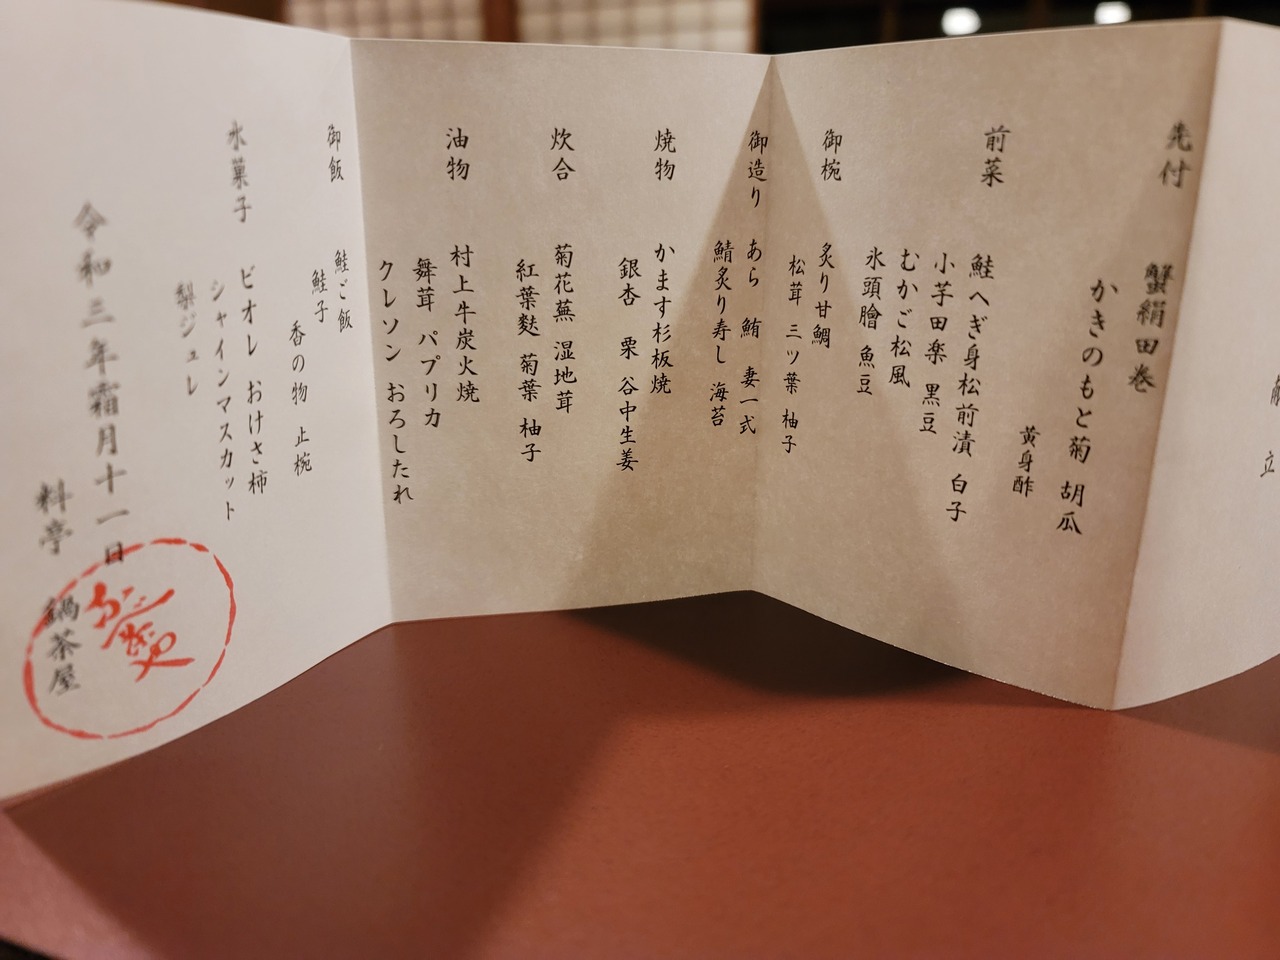 献立
先付
蟹絹田巻
かきのもと菊 胡瓜
黄身酢
前菜
鮭へぎ身松前漬 白子
小芋田楽 黒豆
むかご松風
氷頭膾 魚豆
御椀
炙り甘鯛
松茸 三ツ葉 柚子
御造り
あら 鮪 妻一式
鯖炙り寿し 海苔
焼物
かます杉板焼
銀杏 栗 谷中生姜
炊合
菊花蕪 湿地茸
紅葉麩 菊菜 柚子
油物
村上牛炭火焼
舞茸 パプリカ
クレソン おろしたれ
御飯
鮭ご飯
鮭子
香の物 止椀
氷菓子
ビオレ おけさ柿
シャインマスカット
梨ジュレ
令和三年霜月十一日
料亭 鍋茶屋